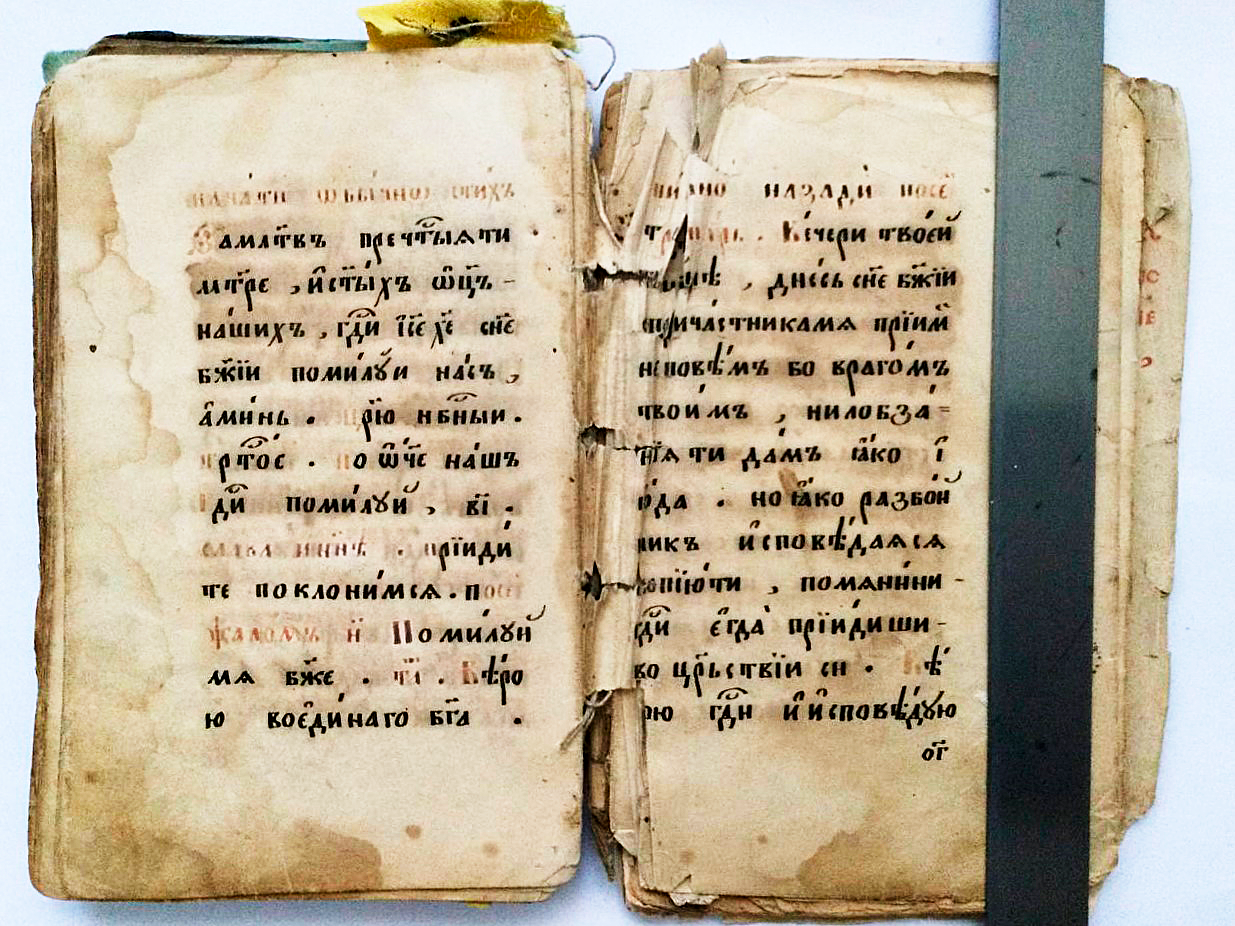 начати ѡбычно стихъ
За мл҃твъ пречⷭ҇тыѧти
мт҃ре , и҆ст҃ы́хъ ѡ҆ц҃ъ -
нашихъ , гдⷭ҇и і҆с҃е хе҃ сн҃е
бж҃їи поми́лꙋи на́съ ,
а҆ми́нь . цр҃ю нбⷭ҇ныи .
трⷭ҇то́е . по ѡ҆́ч҃е на́шъ
гдⷭ҇и поми́лꙋй , в҃і .
слава и ны́нѣ . прїиди́
те поклони́мсѧ . по
ѱало́мъ н҃ Поми́лꙋй
мѧ бж҃е . Вѣ́рꙋ
ю воєди́наго бг҃а .
назадѝ
Ве́чери твоє́й
дне́сь сн҃е бж҃їи
прича́стникамѧ прїими̏
неповѣ́мъ бо враго́мъ
твои́мъ , нилобза́ -
нїѧ ти да́мъ ꙗ҆́ко і҆
ю́да . но ꙗ҆́ко разбо́й
никъ и҆сповѣ́даѧсѧ
вопїю́ти , помѧни́ни -
гдⷭ҇и є҆гда̀ прїи́диши -
во црⷭ҇ьствїи си . Вѣ́
рꙋю гдⷭ҇и и҆ и҆сповѣ́дꙋю
ог҃